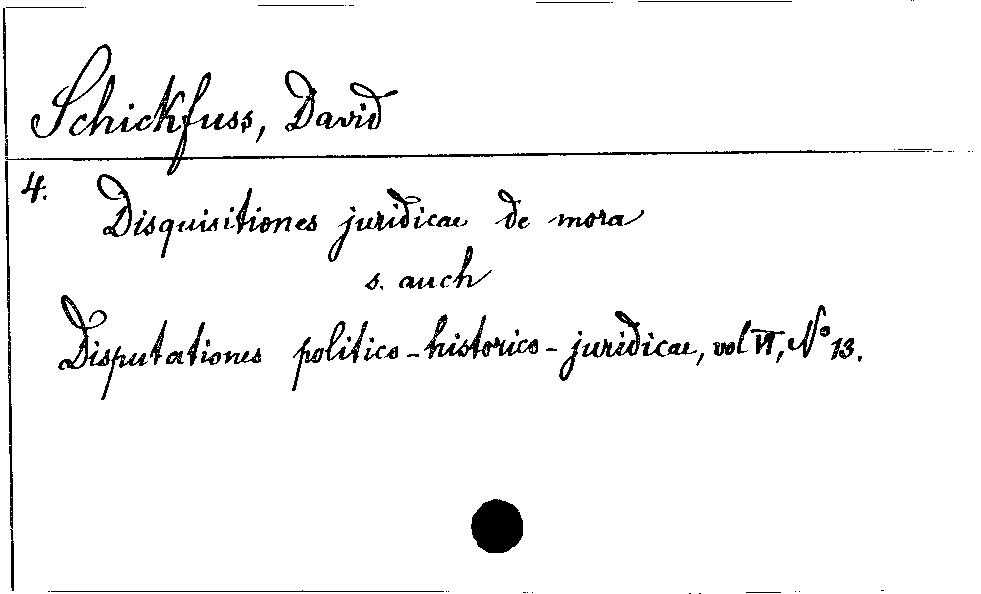 Schickfuss, David
4.
Disquisitiones juridicae de mora
s. auch
Disputationes politico-historico-juridicae, vol VI, No 13.